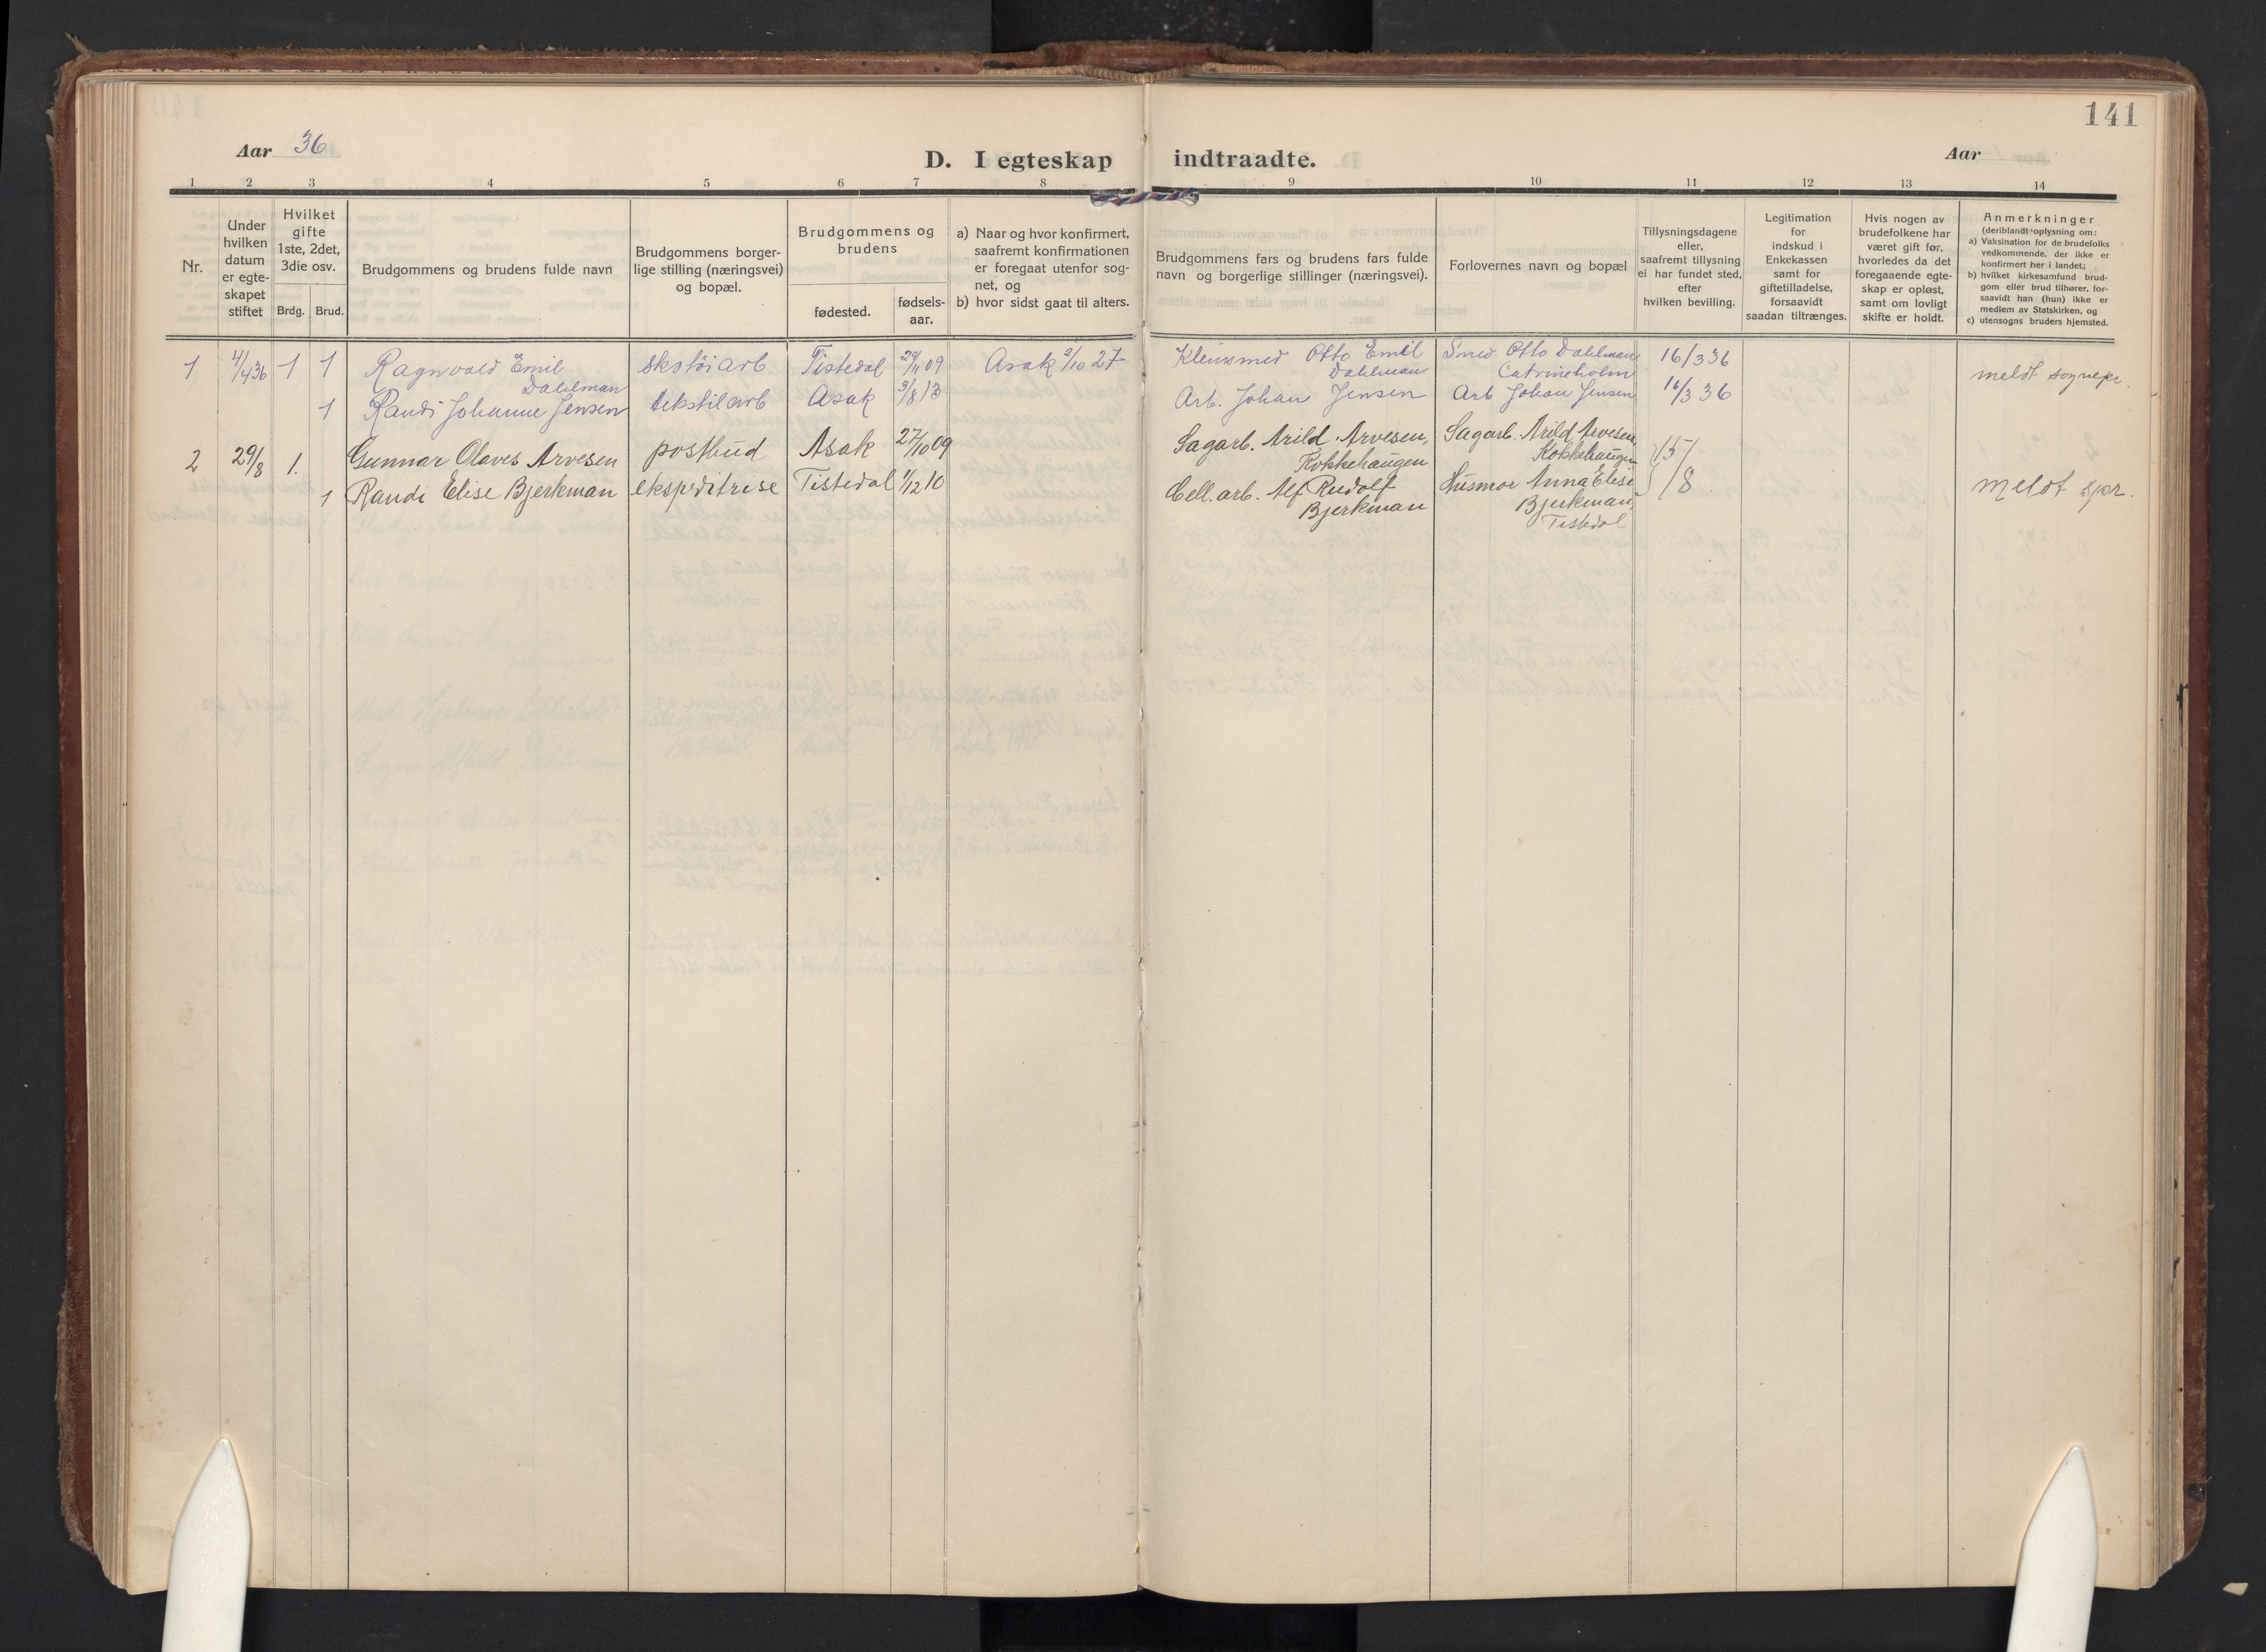 141
Aar 36
D. I egteskap indtraadte.
Aar
1 2 3 4 5 6 7 8 9 10 11 12 13 14
Nr.
Under
hvilken
datum
er egte-
skapet
stiftet
Hvilket
gifte
1ste, 2det,
3die osv.
Brdg. Brud.
Brudgommens og brudens fulde navn
Brudgommens borger-
lige stilling (næringsvei)
og bopæl.
Brudgommens og
brudens
fødested.
fødsels-
aar.
a) Naar og hvor konfirmert,
saafremt konfirmationen
er foregaat utenfor sog-
net, og
b) hvor sidst gaat til alters.
Brudgommens fars og brudens fars fulde
navn og borgerlige stillinger (næringsvei).
Forlovernes navn og bopæl
Tillysningsdagene
eller,
saafremt tillysning
ei har fundet sted,
efter
hvilken bevilling.
Legitimation
for
indskud i
Enkekassen
samt for
giftetilladelse,
forsaavidt
saadan tiltrænges.
Hvis nogen av
brudefolkene har
været gift før,
hvorledes da det
foregaaende egte-
skap er opløst,
samt om lovligt
skifte er holdt.
Anmerkninger
(deriblandt oplysning om:
a) Vaksination for de brudefolks
vedkommende, der ikke er
konfirmert her i landet;
b) hvilket kirkesamfund brud-
gom eller brud tilhører, for-
saavidt han (hun) ikke er
medlem av Statskirken, og
c) utensogns bruders hjemsted.
1 4/4 36 1 1 Ragnvald Emil
Dahlman
skotøiarb Tistedal 29/11 09 Asak 2/10 27 Kleinsmed Otto Emil
Dahlman
Smed Otto Dahlman
Catrineholm
16/3 36 meldt sognepr.
1 Randi Johanne Jensen tekstilarb Asak 3/8 13 Arb. Johan Jensen Arb Johan Jensen 16/3 36
2 29/8 1. Gunnar Olaves Arvesen postbud Asak 27/10 09 Sagarb. Arild Arvesen,
Kokkehaugen
Sagarb. Arild Arvesen,
Kokkehaugen
15/8
1 Randi Elise Bjerkman ekspeditrise Tistedal 1/12 10 Cell. arb. Alf Rudolf
Bjerkman
Husmor Anna Elise
Bjerkman,
Tistedal
meldt spr.